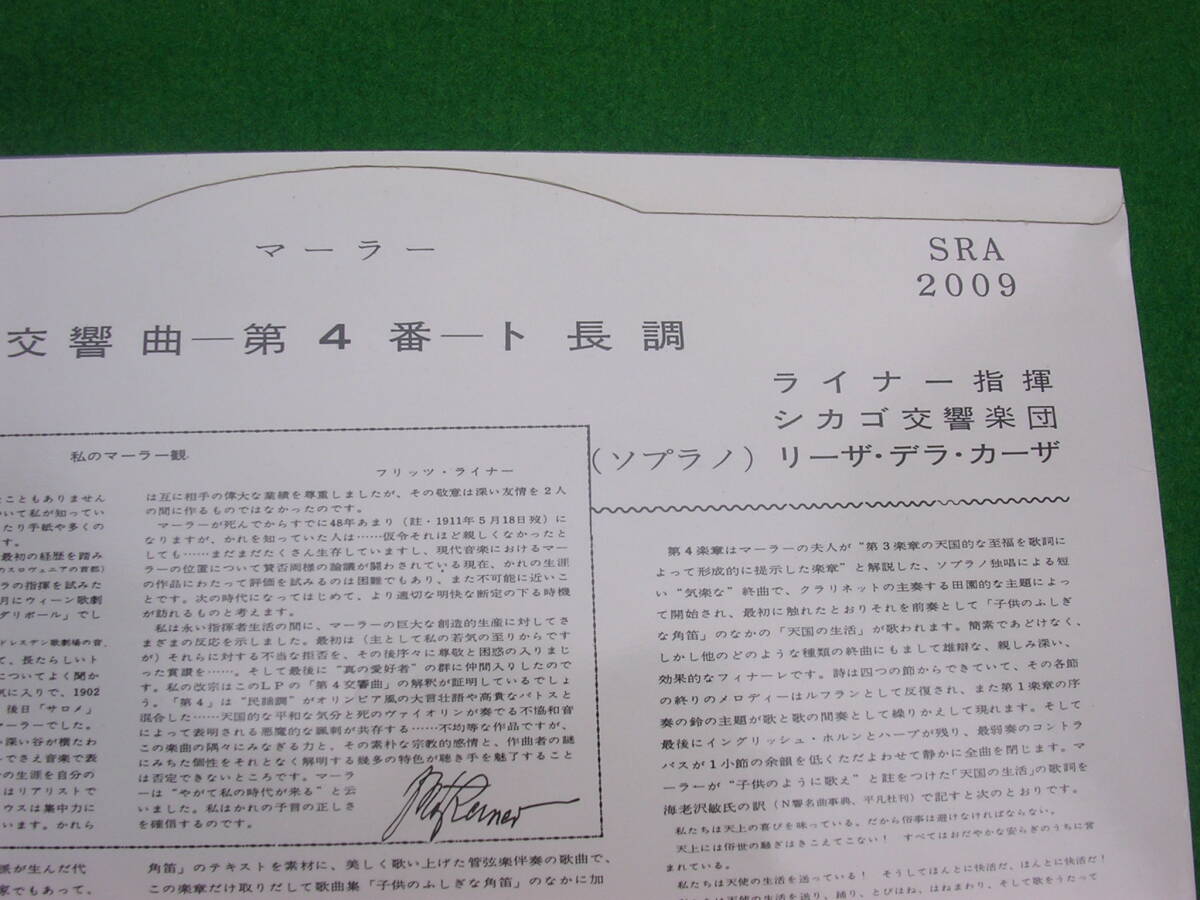 マーラー
SRA
2009
交響曲―第4番―ト長調
ライナー指揮
シカゴ交響楽団
(ソプラノ) リーザ・デラ・カーザ
私のマーラー観
フリッツ・ライナー
なこともありません
いて私が知ってい
たり手紙や多くの
す。
最初の経歴を踏み
のスロヴェニアの首都)
ラの指揮を試みた
月にウィーン歌劇
ダリボール」でし
ドレスデン歌劇場の音、
て、長たらしいト
についてよく聞か
気に入りで、1902
後日「サロメ」
マーラーでした。
い深い谷が横たわ
でさえ音楽で表
の生涯を自分の
はリアリストで
ウスは集中力に
います。かれら
は互に相手の偉大な業績を尊重しましたが、その敬意は深い友情を2人
の間に作るものではなかったのです。
マーラーが死んでからすでに48年あまり (註・1911年5月18日歿) に
なりますが、かれを知っていた人は……仮令それほど親しくなかったと
しても……まだまだたくさん生存していますし、現代音楽におけるマー
ラーの位置について賛否両様の論議が闘わされている現在、かれの生涯
の作品にわたって評価を試みるのは困難でもあり、また不可能に近いこ
とです。次の時代になってはじめて、より適切な明快な断定の下る時機
が訪れるものと考えます。
私は永い指揮者生活の間に、マーラーの巨大な創造的生産に対してさ
まざまの反応を示しました。最初は (主として私の若気の至りからです
が) それらに対する不当な拒否を、その後序々に尊敬と困惑の入りまじ
った賞讃を……。そして最後に “真の愛好者” の群に仲間入りしたので
す。私の改宗はこのLPの「第4交響曲」の解釈が証明しているでしょ
う。「第4」は “民謡調” がオリンピア風の大言壮語や高貴なパトスと
混合した……天国的な平和な気分と死のヴァイオリンが奏でる不協和音
によって表明される悪魔的な諷刺が共存する……不均等な作品ですが、
この楽曲の隅々にみなぎる力と、その素朴な宗教的感情と、作曲者の謎
にみちた個性をそれとなく解明する幾多の特色が聴き手を魅了すること
は否定できないところです。マーラ
ーは “やがて私の時代が来る” と云
いました。私はかれの予言の正しさ
を確信するのです。
Fritz Reiner
派が生んだ代
家でもあって、
角笛」のテキストを素材に、美しく歌い上げた管弦楽伴奏の歌曲で、
この楽章だけ取りだして歌曲集「子供のふしぎな角笛」のなかに加
第4楽章はマーラーの夫人が “第3楽章の天国的な至福を歌詞に
よって形成的に提示した楽章” と解説した、ソプラノ独唱による短
い “気楽な” 終曲で、クラリネットの主奏する田園的な主題によっ
て開始され、最初に触れたとおりそれを前奏として「子供のふしぎ
な角笛」のなかの「天国の生活」が歌われます。簡素であどけなく、
しかし他のどのような種類の終曲にもまして雄辯な、親しみ深い、
効果的なフィナーレです。詩は四つの節からできていて、その各節
の終りのメロディーはルフランとして反復され、また第1楽章の序
奏の鈴の主題が歌と歌の間奏として繰りかえして現れます。そして
最後にイングリッシュ・ホルンとハープが残り、最弱奏のコントラ
バスが1小節の余韻を低くただよわせて静かに全曲を閉じます。マ
ーラーが “子供のように歌え” と註をつけた「天国の生活」の歌詞を
海老沢敏氏の訳 (N響名曲事典、平凡社刊) で記すと次のとおりです。
私たちは天上の喜びを味っている。だから俗事は避けなければならない。
天上には俗世の騒ぎはきこえてこない! すべてはおだやかな安らぎのうちに営
まれている。
私たちは天使の生活を送っている! そうしてほんとに快活だ、ほんとに快活だ!